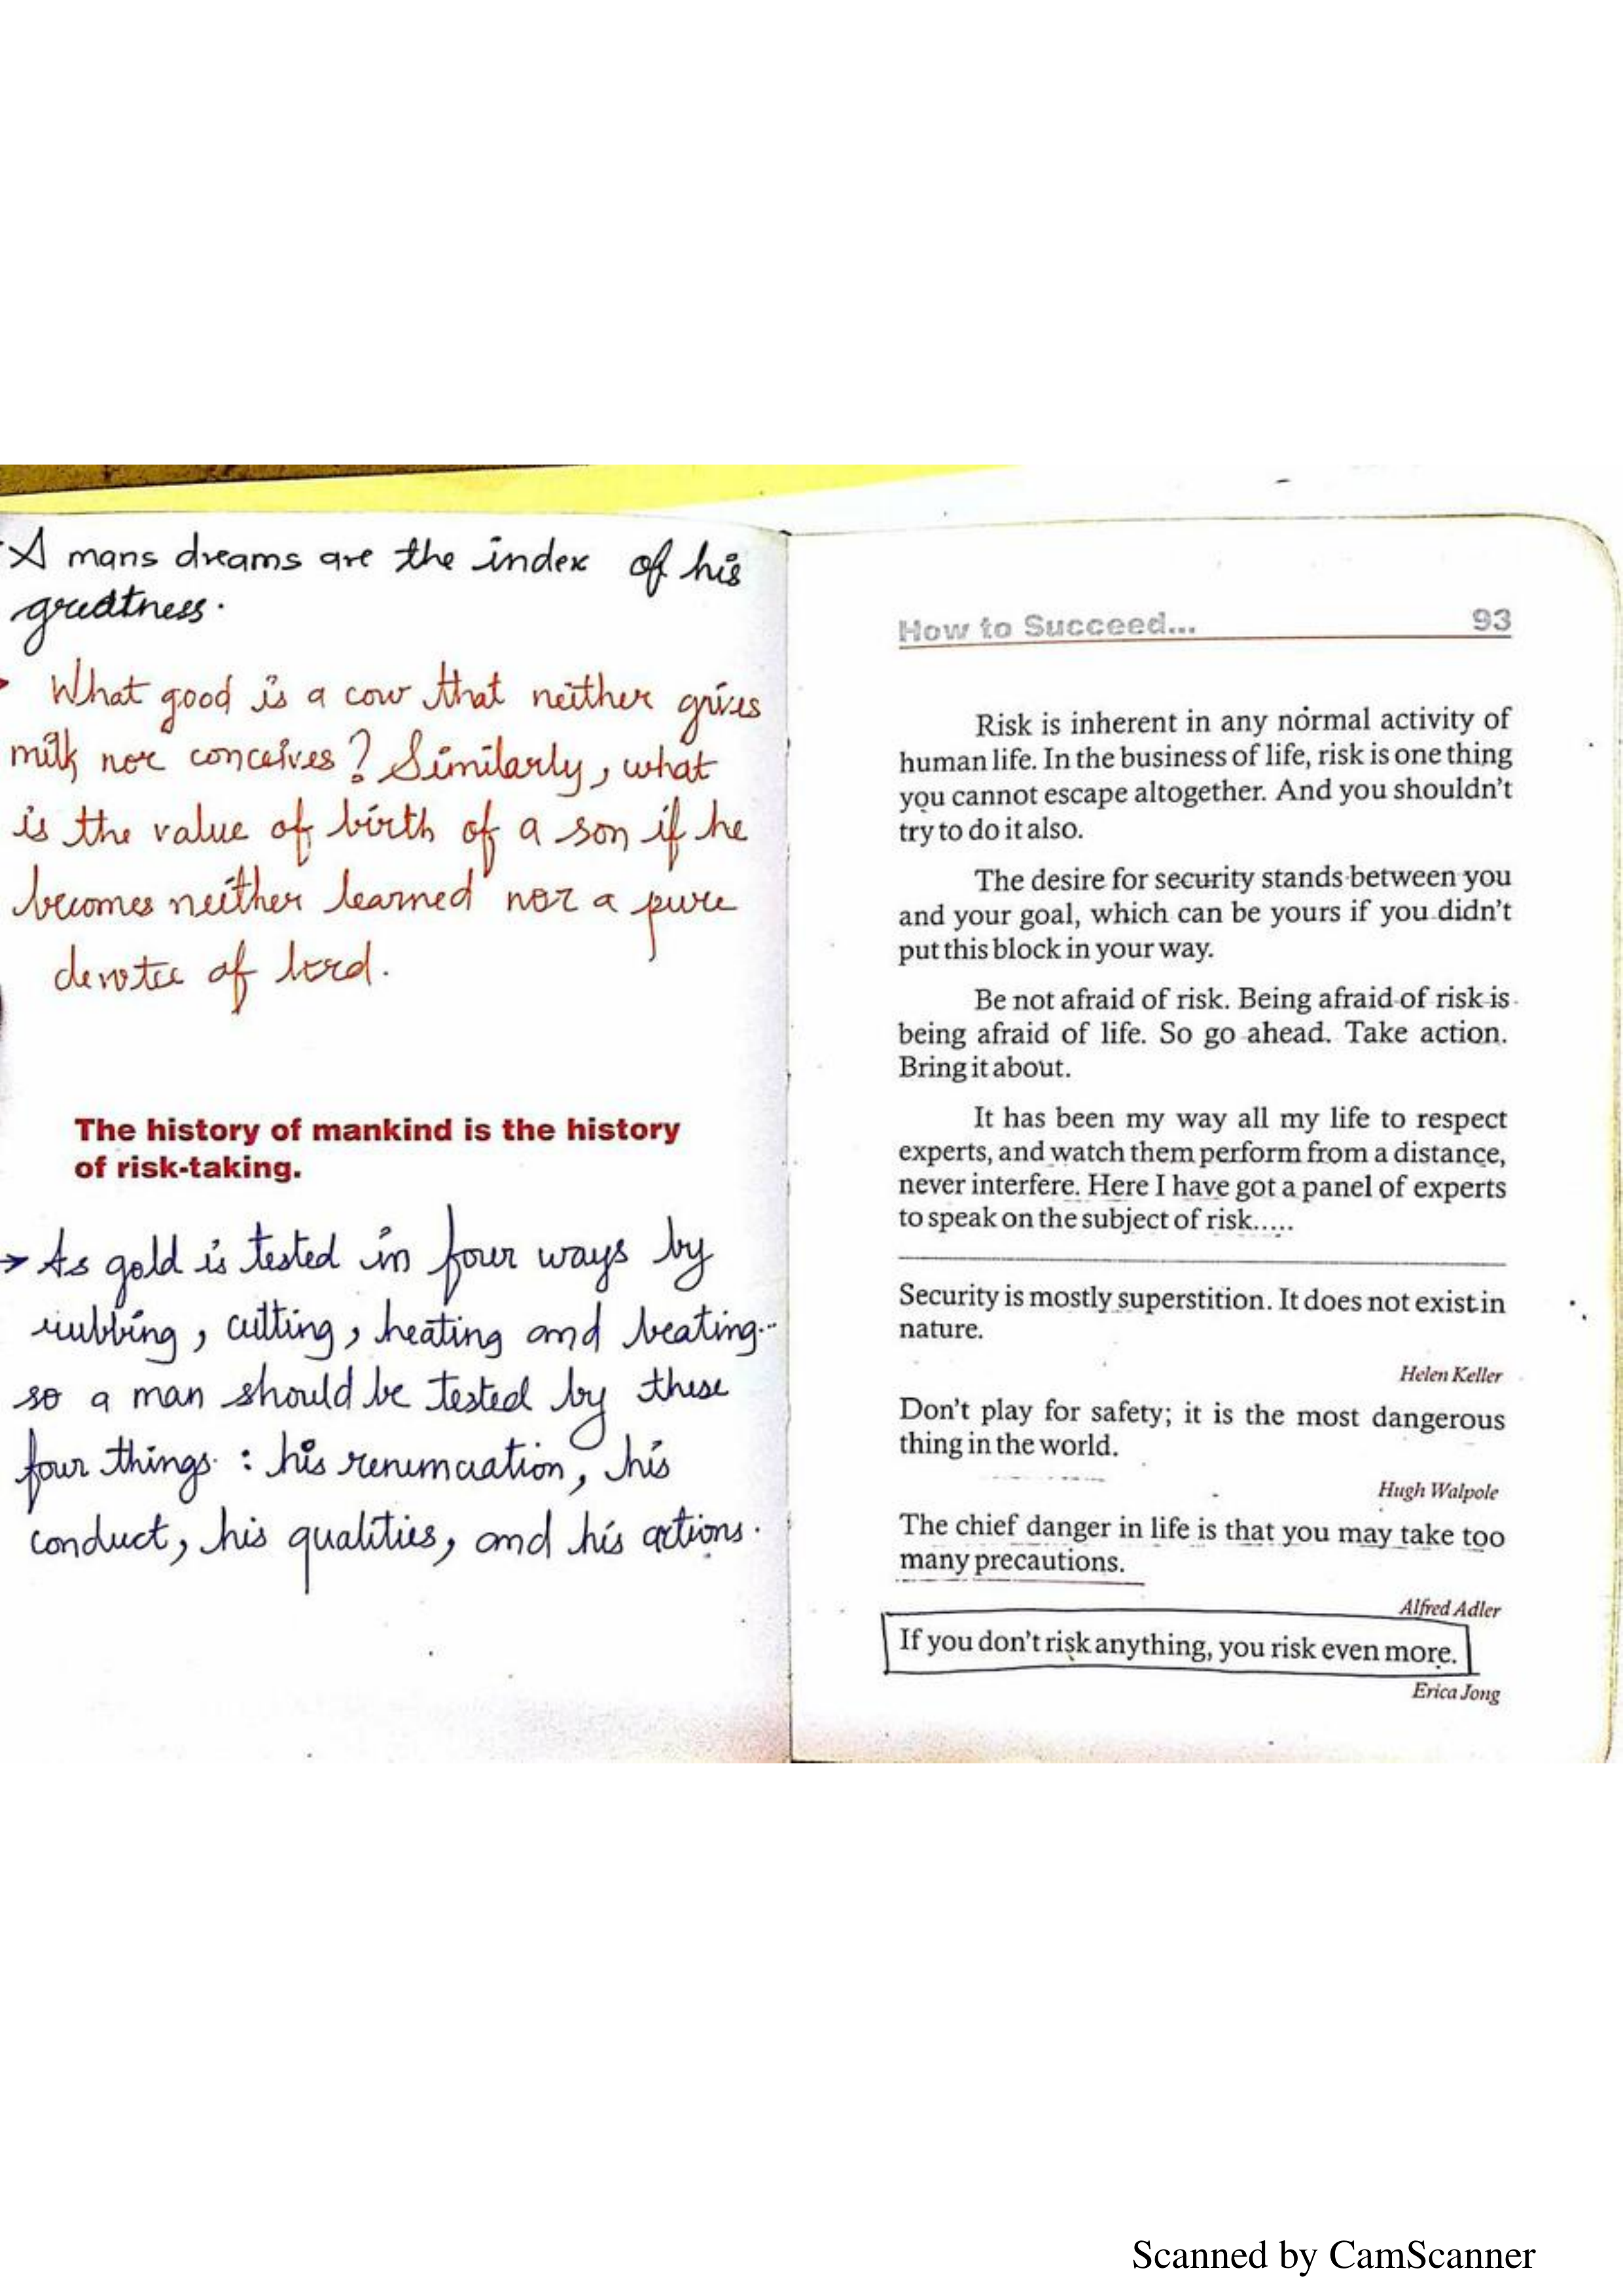 A mans dreams are the index of his
greatness.
What good is a cow that neither gives
milk nor conceives? Similarly, what
is the value of birth of a son if he
becomes neither learned nor a pure
devotee of lord.
The history of mankind is the history
of risk-taking.
→ As gold is tested in four ways by
rubbing, cutting, heating and beating..
so a man should be tested by these
four things : his renunciation, his
conduct, his qualities, and his actions.
How to Succeed... 93
Risk is inherent in any normal activity of
human life. In the business of life, risk is one thing
you cannot escape altogether. And you shouldn't
try to do it also.
The desire for security stands between you
and your goal, which can be yours if you didn't
put this block in your way.
Be not afraid of risk. Being afraid of risk is
being afraid of life. So go ahead. Take action.
Bring it about.
It has been my way all my life to respect
experts, and watch them perform from a distance,
never interfere. Here I have got a panel of experts
to speak on the subject of risk.....
Security is mostly superstition. It does not exist in
nature.
Helen Keller
Don't play for safety; it is the most dangerous
thing in the world.
Hugh Walpole
The chief danger in life is that you may take too
many precautions.
Alfred Adler
If you don't risk anything, you risk even more.
Erica Jong
Scanned by CamScanner